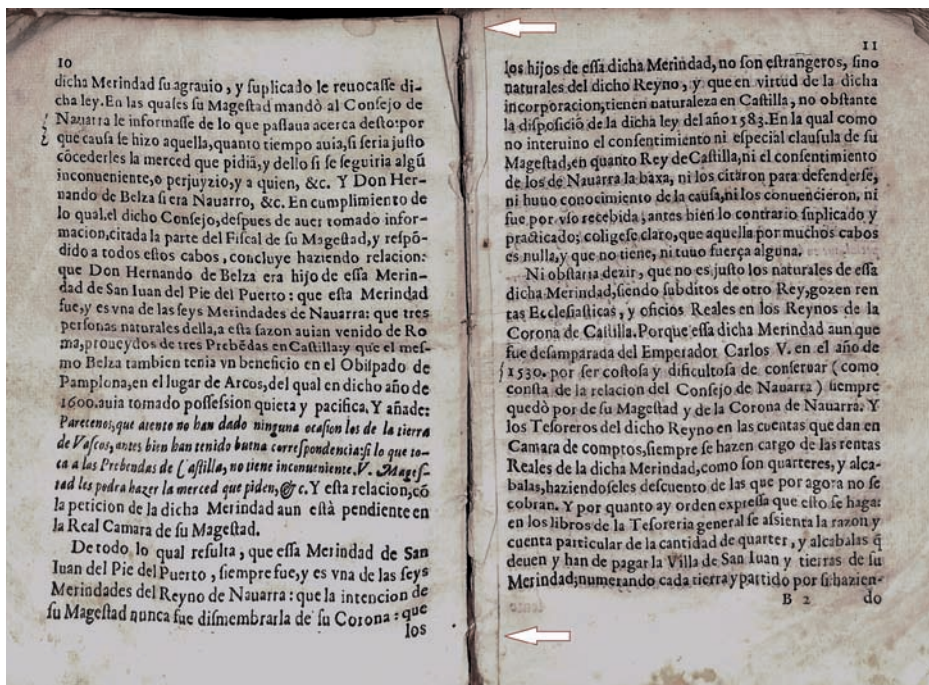 10
dicha Merindad ſu agrauio, y ſuplicado le reuocaſſe di-
cha ley. En las quales ſu Mageſtad mandò al Conſejo de
Nauarra le informaſſe de lo que paſſaua acerca deſto: por
que cauſa ſe hizo aquella, quanto tiempo auia, ſi ſeria juſto
cõcederles la merced que pidiã, y dello ſi ſe ſeguiria algũ
inconueniente, o perjuyzio, y a quien, &c. Y Don Her-
nando de Belza ſi era Nauarro, &c. En cumplimiento de
lo qual. el dicho Conſejo, deſpues de auer tomado infor-
macion, citada la parte del Fiſcal de ſu Mageſtad, y reſpõ-
dido a todos eſtos cabos, concluye haziendo relacion:
que Don Hernando de Belza era hijo de eſſa Merin-
dad de San Iuan del Pie del Puerto: que eſta Merindad
fue, y es vna de las ſeys Merindades de Nauarra: que tres
perſonas naturales della, a eſta ſazon auian venido de Ro
ma, proueydos de tres Prebẽdas en Caſtilla: y que el meſ-
mo Belza tambien tenia vn beneficio en el Obiſpado de
Pamplona, en el lugar de Arcos, del qual en dicho año de
1600. auia tomado poſſeſsion quieta y pacifica. Y añade:
Parecenos, que atento no han dado ninguna ocaſion los de la tierra
de Vaſcos, antes bien han tenido buena correſpondencia: ſi lo que to-
ca a las Prebendas de Caſtilla, no tiene inconueniente. V. Mageſ-
tad les podra hazer la merced que piden, &c. Y eſta relacion, cõ
la peticion de la dicha Merindad aun eſtà pendiente en
la Real Camara de ſu Mageſtad.
De todo lo qual reſulta, que eſſa Merindad de San
Iuan del Pie del Puerto, ſiempre fue, y es vna de las ſeys
Merindades del Reyno de Nauarra: que la intencion de
ſu Mageſtad nunca fue diſmembrarla de ſu Corona: que
los
11
los hijos de eſſa dicha Merindad, no ſon eſtrangeros, ſino
naturales del dicho Reyno, y que en virtud de la dicha
incorporacion, tienen naturaleza en Caſtilla, no obſtante
la diſpoſiciõ de la dicha ley del año 1583. En la qual como
no interuino el conſentimiento ni eſpecial clauſula de ſu
Mageſtad, en quanto Rey de Caſtilla, ni el conſentimiento
de los de Nauarra la baxa, ni los citàron para defenderſe,
ni huuo conocimiento de la cauſa, ni los conuencieron, ni
fue por vſo recebida, antes bien lo contrario ſuplicado y
practicado; coligeſe claro, que aquella por muchos cabos
es nulla, y que no tiene, ni tuuo fuerça alguna.
Ni obſtaria dezir, que no es juſto los naturales de eſſa
dicha Merindad, ſiendo ſubditos de otro Rey, gozen ren
tas Eccleſiaſticas, y oficios Reales en los Reynos de la
Corona de Caſtilla. Porque eſſa dicha Merindad aun que
fue deſamparada del Emperador Carlos V. en el año de
1530. por ſer coſtoſa y dificultoſa de conſeruar (como
conſta de la relacion del Conſejo de Nauarra) ſiempre
quedò por de ſu Mageſtad y de la Corona de Nauarra. Y
los Teſoreros del dicho Reyno en las cuentas que dan en
Camara de comptos, ſiempre ſe hazen cargo de las rentas
Reales de la dicha Merindad, como ſon quarteres, y alca-
balas, haziendoſeles deſcuento de las que por agora no ſe
cobran. Y por quanto ay orden expreſſa que eſto ſe haga:
en los libros de la Teſoreria general ſe aſsienta la razon y
cuenta particular de la cantidad de quarter, y alcabalas q̃
deuen y han de pagar la Villa de San Iuan y tierras de ſu
Merindad; numerando cada tierra y partido por ſi: hazien-
B 2 do